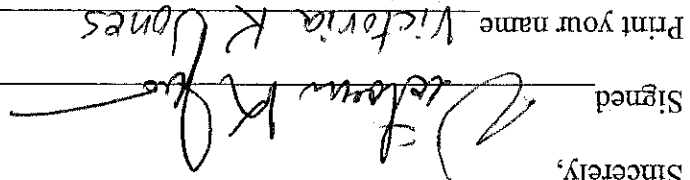 Sincerely,
Signed Victoria K Jones
Print your name Victoria K Jones